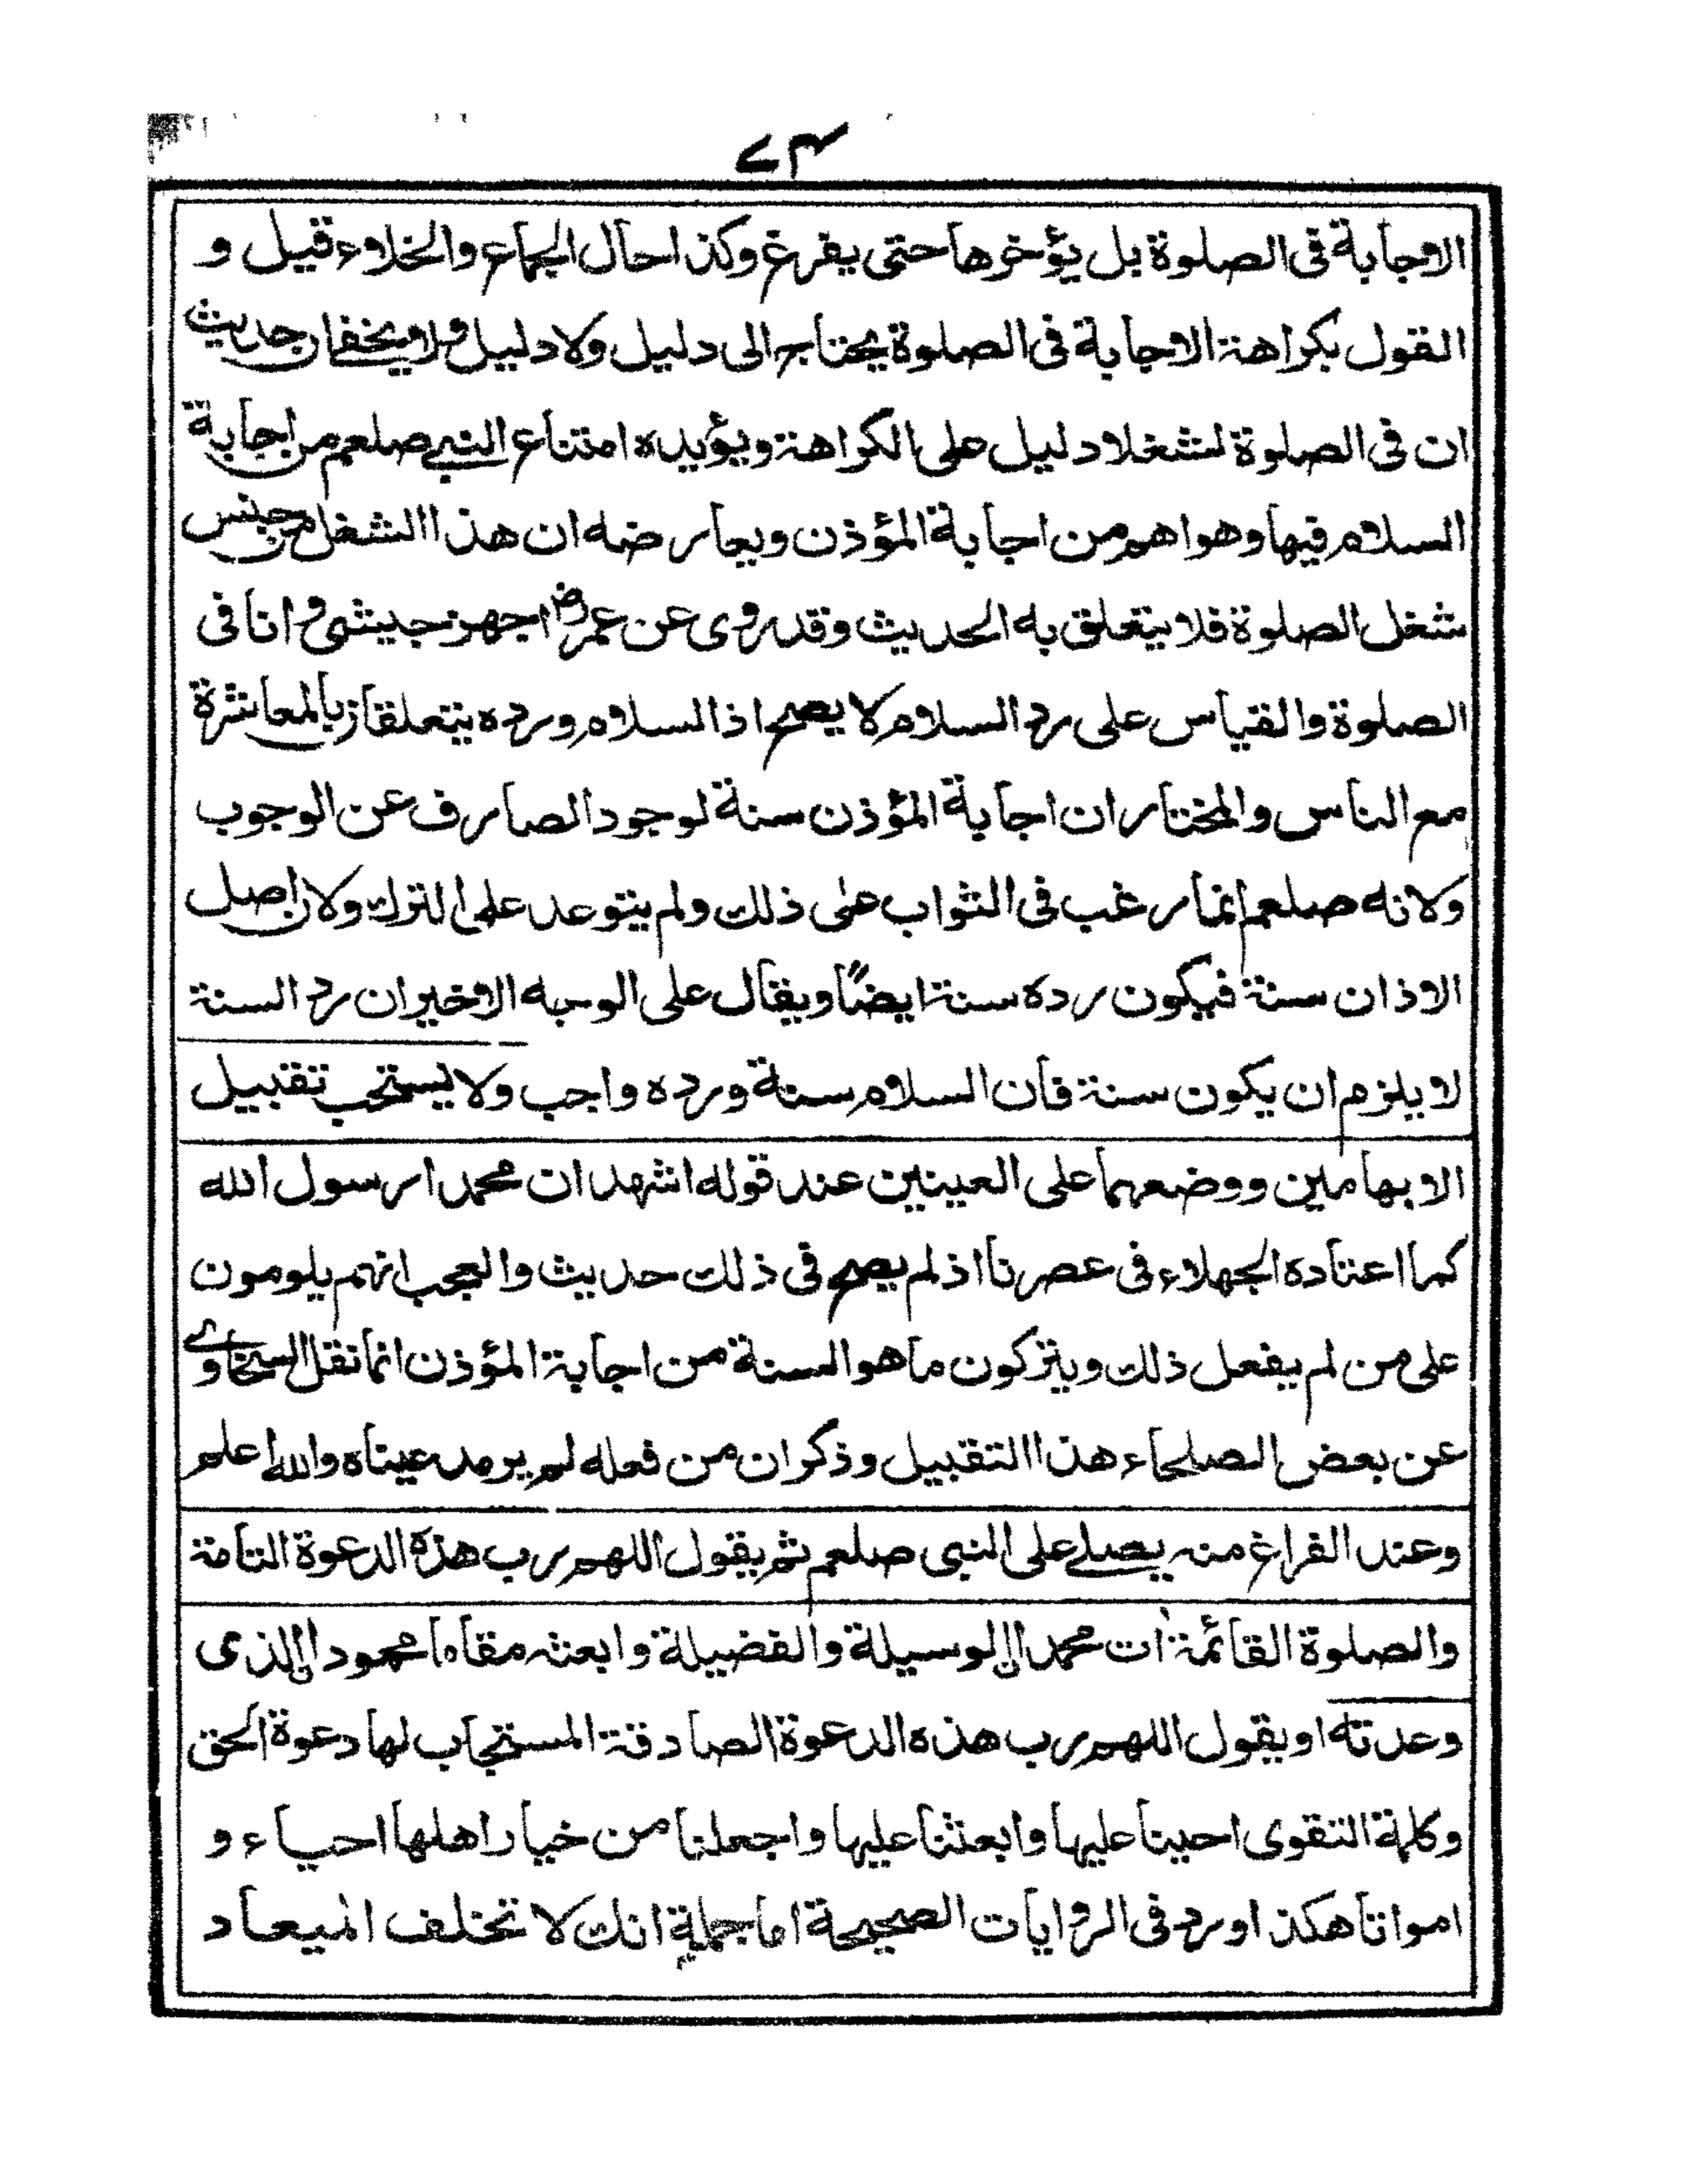 ٧٤
الاجابة فى الصلوة بل يؤخرها حتى يفرغ وكذا حال الجماع والخلاء قيل و
القول بكراهة الاجابة فى الصلوة يحتاج الى دليل ولا دليل ولا يخفى ان حديث
ان فى الصلوة لشغلا دليل على الكراهة ويؤيده امتناع النبى صلعم من اجابة
السلام فيها وهو اهم من اجابة المؤذن ويعارضه ان هذا الشغل من جنس
شغل الصلوة فلا يتعلق به الحديث وقد روى عن عمر رض اجهز جيشى وانا فى
الصلوة والقياس على رد السلام لا يصح اذ السلام ورده يتعلقان بالمعاشرة
مع الناس والمختار ان اجابة المؤذن سنة لوجود الصارف عن الوجوب
ولانه صلعم انما رغب فى الثواب على ذلك ولم يتوعد على الترك ولان اصل
الاذان سنة فيكون رده سنة ايضًا ويقال على الوجه الاخير ان رد السنة
لا يلزم ان يكون سنة فان السلام سنة ورده واجب ولا يستحب تقبيل
الابهامين ووضعهما على العينين عند قوله اشهد ان محمدا رسول الله
كما اعتاده الجهلاء فى عصرنا اذ لم يصح فى ذلك حديث والعجب انهم يلومون
على من لم يفعل ذلك ويتركون ما هو السنة من اجابة المؤذن انما نقل السخاوے
عن بعض الصلحاء هذا التقبيل وذكر ان من فعله لم يرمد عيناه والله اعلم
وعند الفراغ منه يصلے على النبى صلعم ثم يقول اللهم رب هذه الدعوة التامة
والصلوة القائمة ات محمدا الوسيلة والفضيلة وابعثه مقاما محمودا الذى
وعدته او يقول اللهم رب هذه الدعوة الصادقة المستجاب لها دعوة الحق
وكلمة التقوى احينا عليها وابعثنا عليها واجعلنا من خيار اهلها احياء و
امواتا هكذا ورد فى الروايات الصحيحة اما جملة انك لا تخلف الميعاد